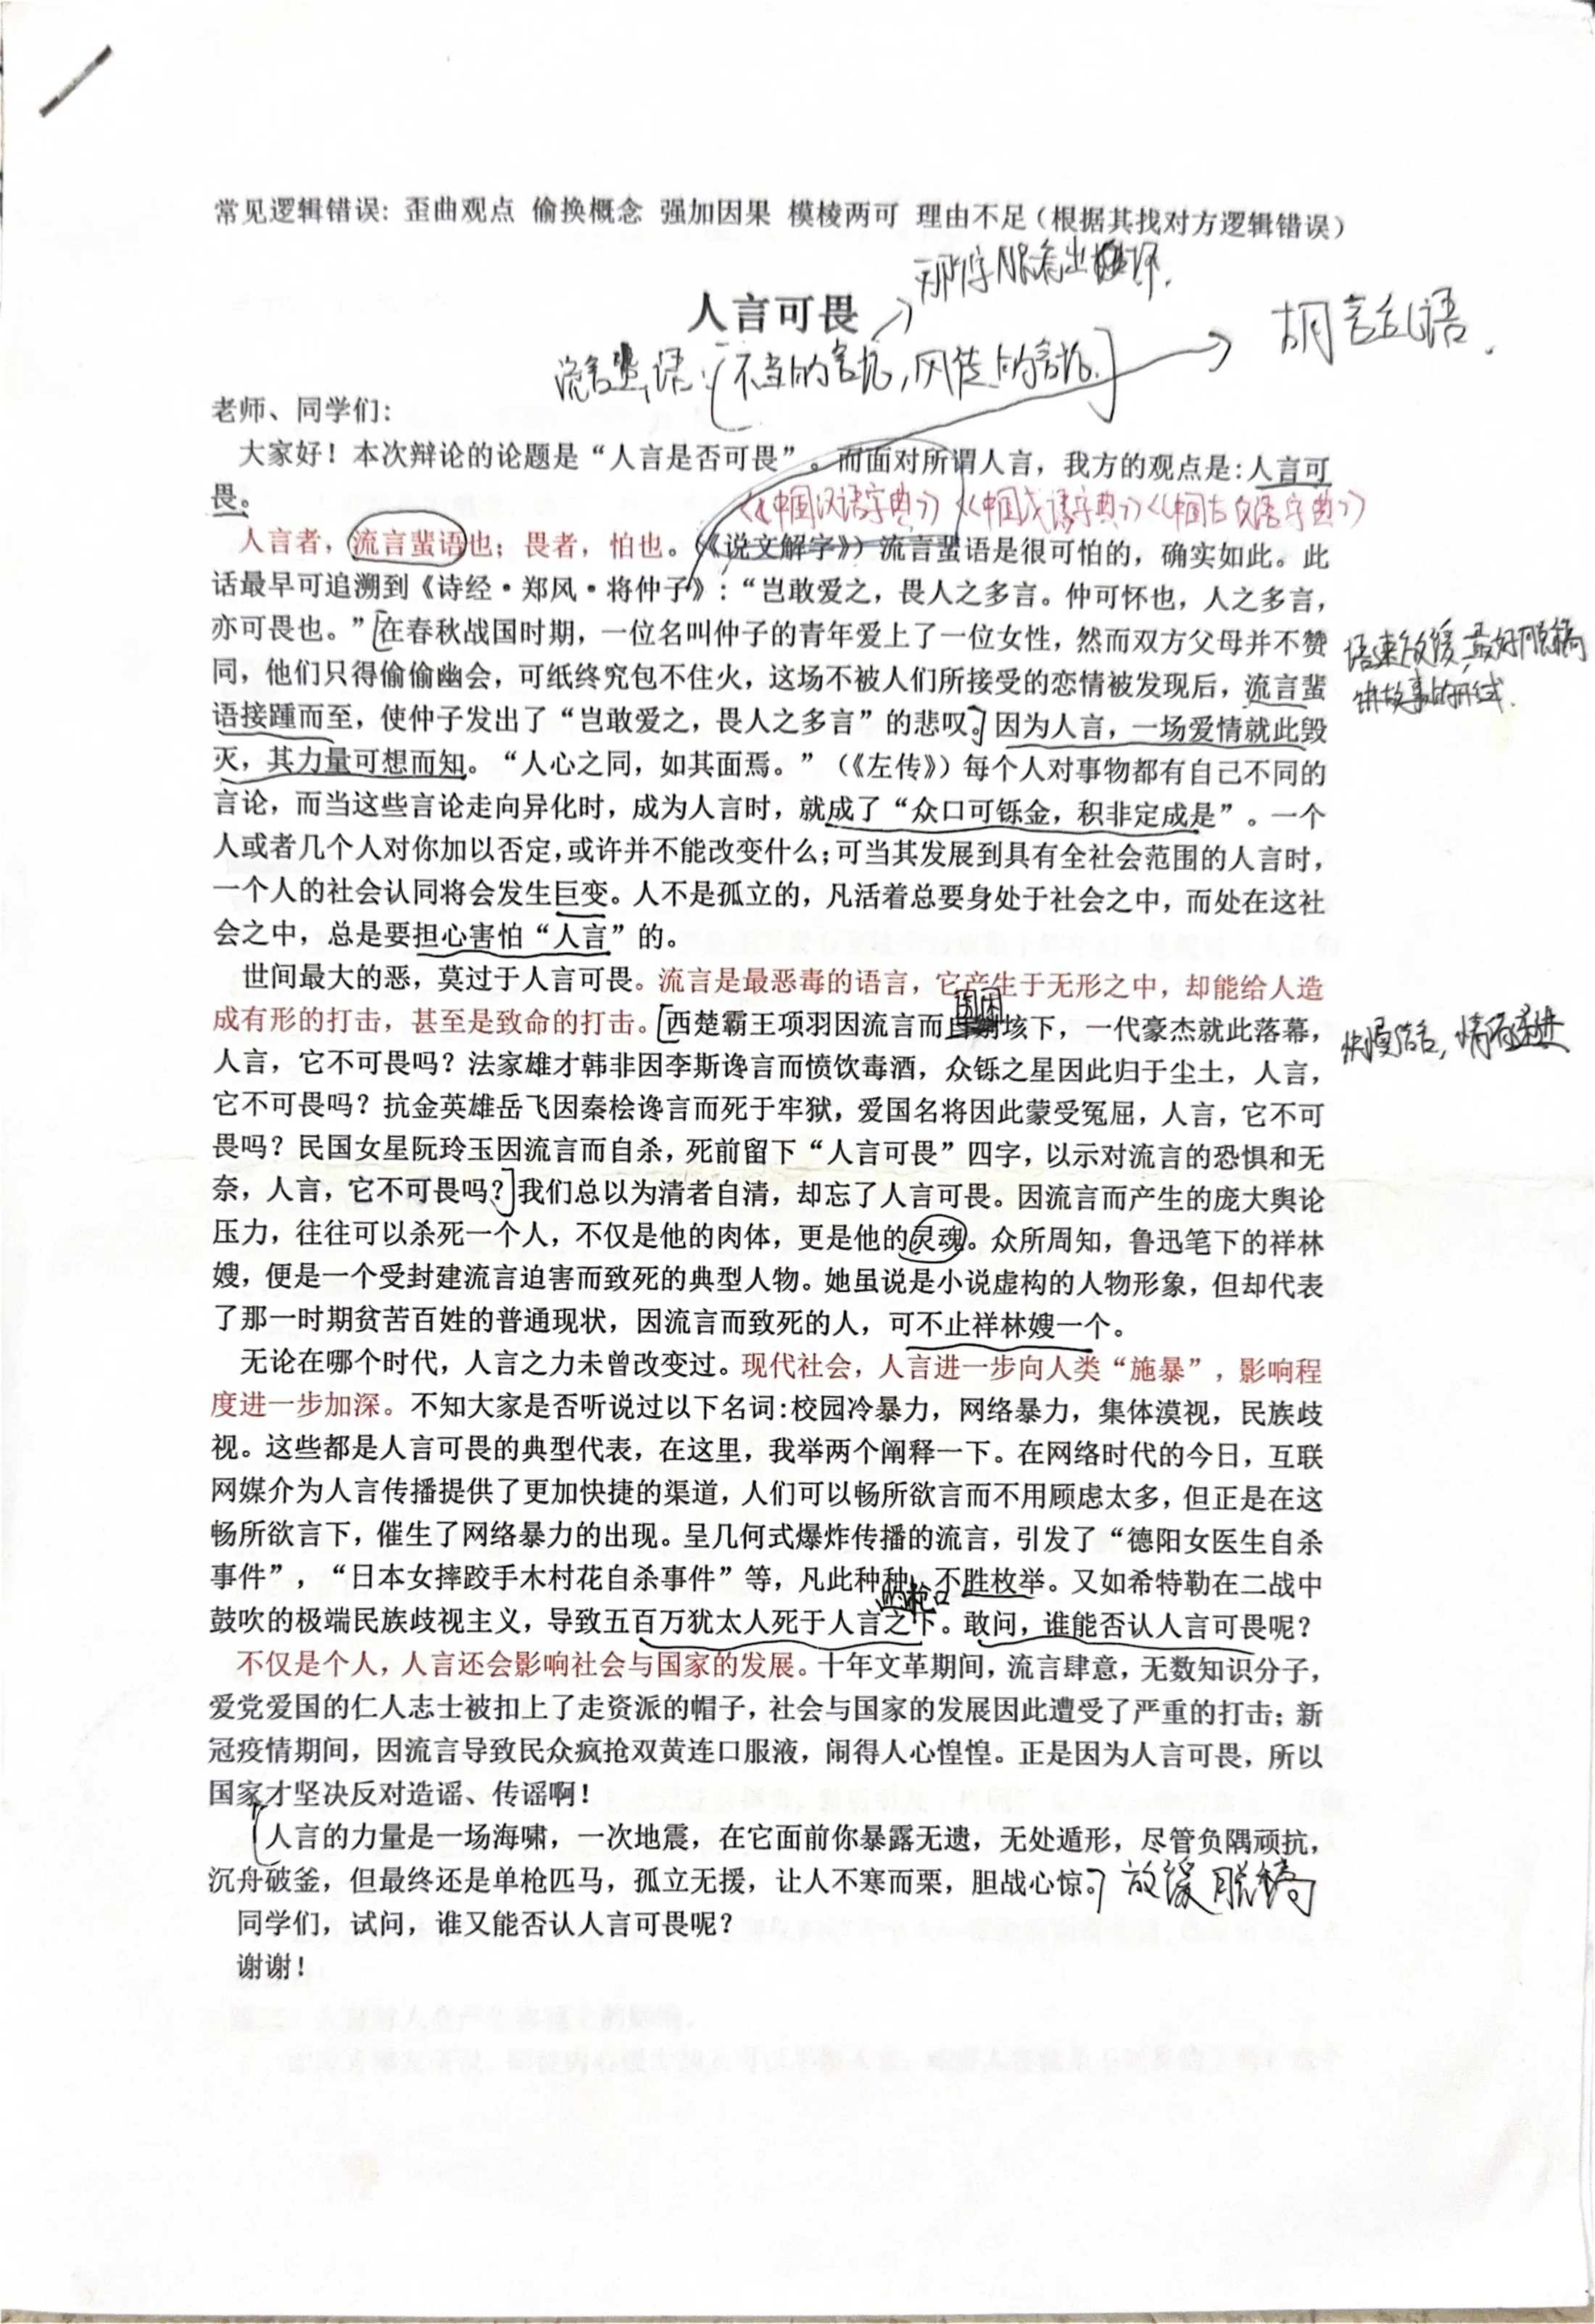 常见逻辑错误: 歪曲观点 偷换概念 强加因果 模棱两可 理由不足(根据其找对方逻辑错误)
人言可畏
流言蜚语:[不当的言论,风传的言论.]
胡言乱语.
老师、同学们:
大家好！本次辩论的论题是“人言是否可畏”。而面对所谓人言，我方的观点是:人言可
畏。
《中国汉语字典》《中国成语字典》《中国古文语字典》
人言者，流言蜚语也；畏者，怕也。(《说文解字》) 流言蜚语是很可怕的，确实如此。此
话最早可追溯到《诗经·郑风·将仲子》:“岂敢爱之，畏人之多言。仲可怀也，人之多言，
亦可畏也。”[在春秋战国时期，一位名叫仲子的青年爱上了一位女性，然而双方父母并不赞
语速放缓,最好脱稿
讲故事的形式.
同，他们只得偷偷幽会，可纸终究包不住火，这场不被人们所接受的恋情被发现后，流言蜚
语接踵而至，使仲子发出了“岂敢爱之，畏人之多言”的悲叹。]因为人言，一场爱情就此毁
灭，其力量可想而知。“人心之同，如其面焉。”（《左传》）每个人对事物都有自己不同的
言论，而当这些言论走向异化时，成为人言时，就成了“众口可铄金，积非定成是”。一个
人或者几个人对你加以否定,或许并不能改变什么;可当其发展到具有全社会范围的人言时，
一个人的社会认同将会发生巨变。人不是孤立的，凡活着总要身处于社会之中，而处在这社
会之中，总是要担心害怕“人言”的。
世间最大的恶，莫过于人言可畏。流言是最恶毒的语言，它产生于无形之中，却能给人造
成有形的打击，甚至是致命的打击。[西楚霸王项羽因流言而围困垓下，一代豪杰就此落幕，
人言，它不可畏吗？法家雄才韩非因李斯谗言而愤饮毒酒，众铄之星因此归于尘土，人言，
快慢结合,情绪递进
它不可畏吗？抗金英雄岳飞因秦桧谗言而死于牢狱，爱国名将因此蒙受冤屈，人言，它不可
畏吗？民国女星阮玲玉因流言而自杀，死前留下“人言可畏”四字，以示对流言的恐惧和无
奈，人言，它不可畏吗？]我们总以为清者自清，却忘了人言可畏。因流言而产生的庞大舆论
压力，往往可以杀死一个人，不仅是他的肉体，更是他的灵魂。众所周知，鲁迅笔下的祥林
嫂，便是一个受封建流言迫害而致死的典型人物。她虽说是小说虚构的人物形象，但却代表
了那一时期贫苦百姓的普通现状，因流言而致死的人，可不止祥林嫂一个。
无论在哪个时代，人言之力未曾改变过。现代社会，人言进一步向人类“施暴”，影响程
度进一步加深。不知大家是否听说过以下名词:校园冷暴力，网络暴力，集体漠视，民族歧
视。这些都是人言可畏的典型代表，在这里，我举两个阐释一下。在网络时代的今日，互联
网媒介为人言传播提供了更加快捷的渠道，人们可以畅所欲言而不用顾虑太多，但正是在这
畅所欲言下，催生了网络暴力的出现。呈几何式爆炸传播的流言，引发了“德阳女医生自杀
事件”，“日本女摔跤手木村花自杀事件”等，凡此种种，不胜枚举。又如希特勒在二战中
的枪口
鼓吹的极端民族歧视主义，导致五百万犹太人死于人言之下。敢问，谁能否认人言可畏呢？
不仅是个人，人言还会影响社会与国家的发展。十年文革期间，流言肆意，无数知识分子，
爱党爱国的仁人志士被扣上了走资派的帽子，社会与国家的发展因此遭受了严重的打击；新
冠疫情期间，因流言导致民众疯抢双黄连口服液，闹得人心惶惶。正是因为人言可畏，所以
国家才坚决反对造谣、传谣啊！
[人言的力量是一场海啸，一次地震，在它面前你暴露无遗，无处遁形，尽管负隅顽抗，
沉舟破釜，但最终还是单枪匹马，孤立无援，让人不寒而栗，胆战心惊。] 放缓 脱稿
同学们，试问，谁又能否认人言可畏呢？
谢谢！